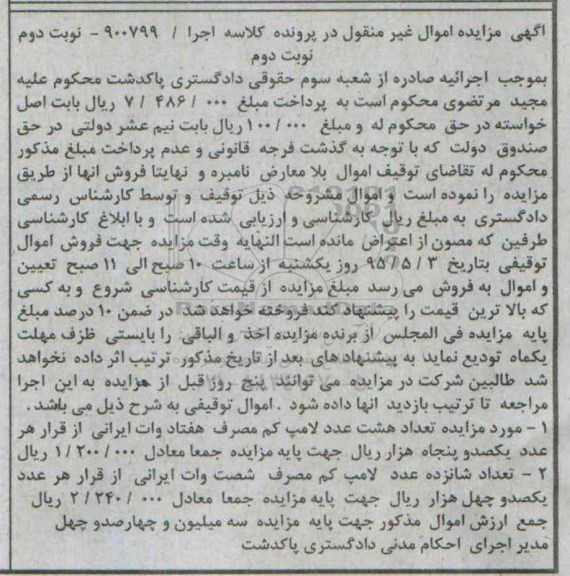 اگهی مزایده اموال غیر منقول در پرونده کلاسه اجرا / ۹۰۰۷۹۹ - نوبت دوم
نوبت دوم
بموجب اجرائیه صادره از شعبه سوم حقوقی دادگستری پاکدشت محکوم علیه
مجید مرتضوی محکوم است به پرداخت مبلغ ۰۰۰ / ۴۸۶ / ۷ ریال بابت اصل
خواسته در حق محکوم له و مبلغ ۱۰۰/۰۰۰ ریال بابت نیم عشر دولتی در حق
صندوق دولت که با توجه به گذشت فرجه قانونی و عدم پرداخت مبلغ مذکور
محکوم له تقاضای توقیف اموال بلا معارض نامبره و نهایتا فروش انها از طریق
مزایده را نموده است و اموال مشروحه ذیل توقیف و توسط کارشناس رسمی
دادگستری به مبلغ ریال کارشناسی و ارزیابی شده است و با ابلاغ کارشناسی
طرفین که مصون از اعتراض مانده است النهایه وقت مزایده جهت فروش اموال
توقیفی بتاریخ ۳ / ۵ / ۹۵ روز یکشنبه از ساعت ۱۰ صبح الی ۱۱ صبح تعیین
و اموال به فروش می رسد مبلغ مزایده از قیمت کارشناسی شروع و به کسی
که بالا ترین قیمت را پیشنهاد کند فروخته خواهد شد در ضمن ۱۰ درصد مبلغ
پایه مزایده فی المجلس از برنده مزایده اخذ و الباقی را بایستی ظزف مهلت
یکماه تودیع نماید به پیشنهاد های بعد از تاریخ مذکور ترتیب اثر داده نخواهد
شد طالبین شرکت در مزایده می توانند پنج روز قبل از مزایده به این اجرا
مراجعه تا ترتیب بازدید انها داده شود . اموال توقیفی به شرح ذیل می باشد .
۱ - مورد مزایده تعداد هشت عدد لامپ کم مصرف هفتاد وات ایرانی از قرار هر
عدد یکصدو پنجاه هزار ریال جهت پایه مزایده جمعا معادل ۱/۲۰۰/۰۰۰ ریال
۲ - تعداد شانزده عدد لامپ کم مصرف شصت وات ایرانی از قرار هر عدد
یکصدو چهل هزار ریال جهت پایه مزایده جمعا معادل ۰۰۰ / ۲۴۰ / ۲ ریال
جمع ارزش اموال مذکور جهت پایه مزایده سه میلیون و چهارصدو چهل
مدیر اجرای احکام مدنی دادگستری پاکدشت